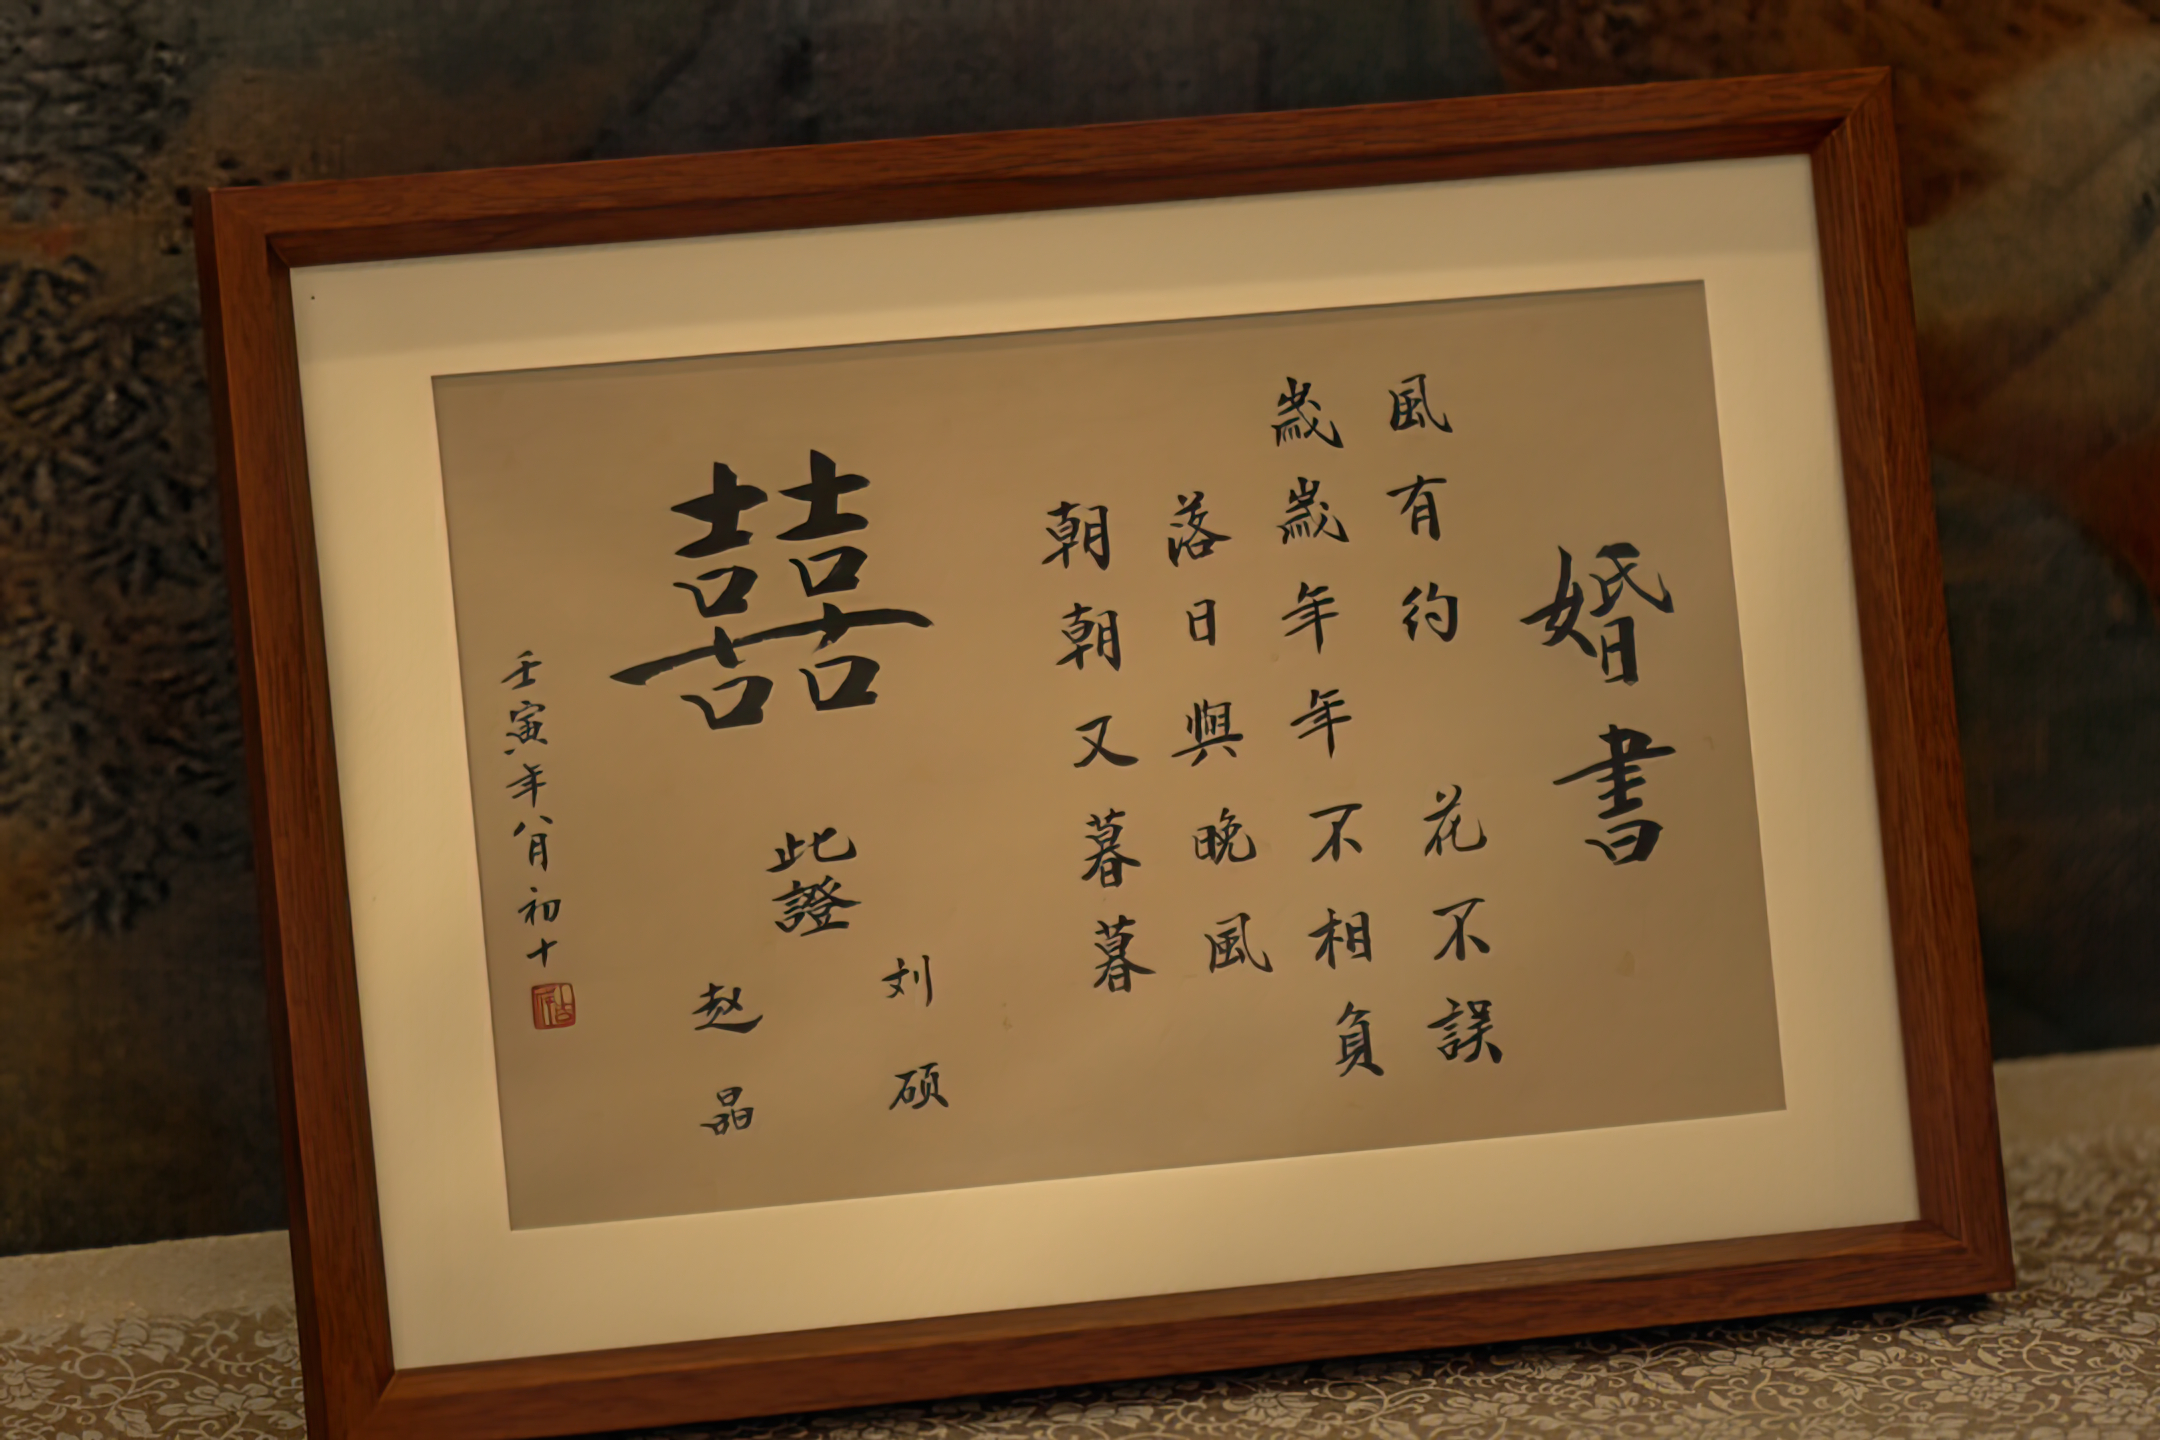 婚書
風有約 花不誤
歲歲年年不相負
落日與晚風
朝朝又暮暮
囍
此證
刘硕
赵晶
壬寅年八月初十